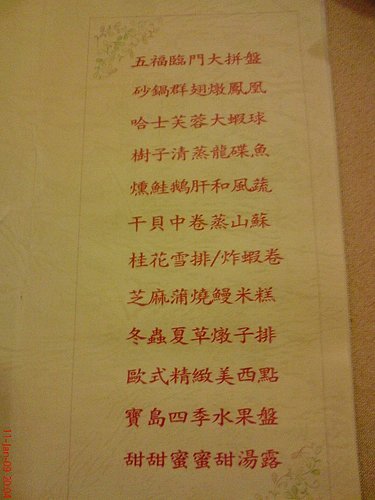 五福臨門大拼盤
砂鍋群翅燉鳳凰
哈士芙蓉大蝦球
樹子清蒸龍碟魚
燻鮭鵝肝和風蔬
干貝中卷蒸山蘇
桂花雪排/炸蝦卷
芝麻蒲燒鰻米糕
冬蟲夏草燉子排
歐式精緻美西點
寶島四季水果盤
甜甜蜜蜜甜湯露
11-Jan-09 20:04